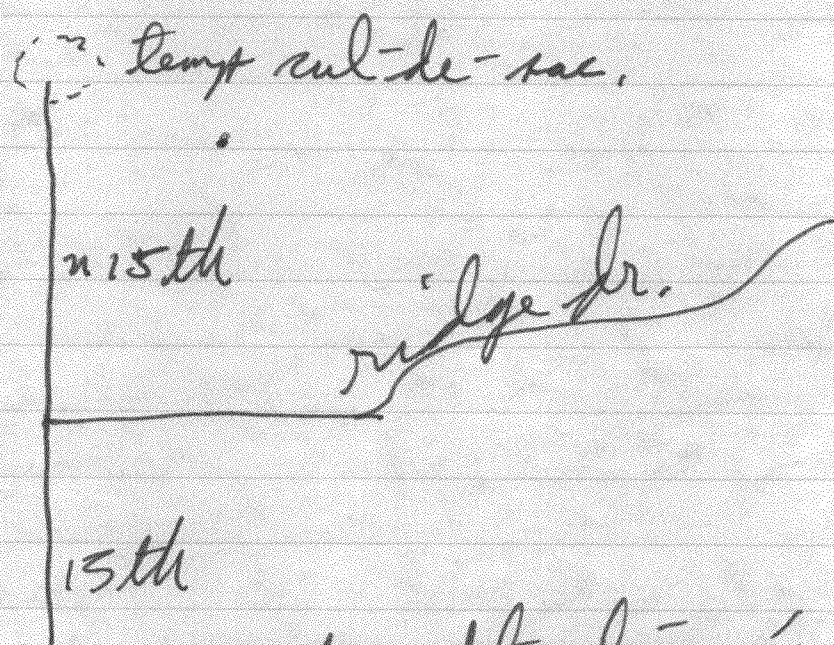 temp cul-de-sac.
n 15th
ridge dr.
15th